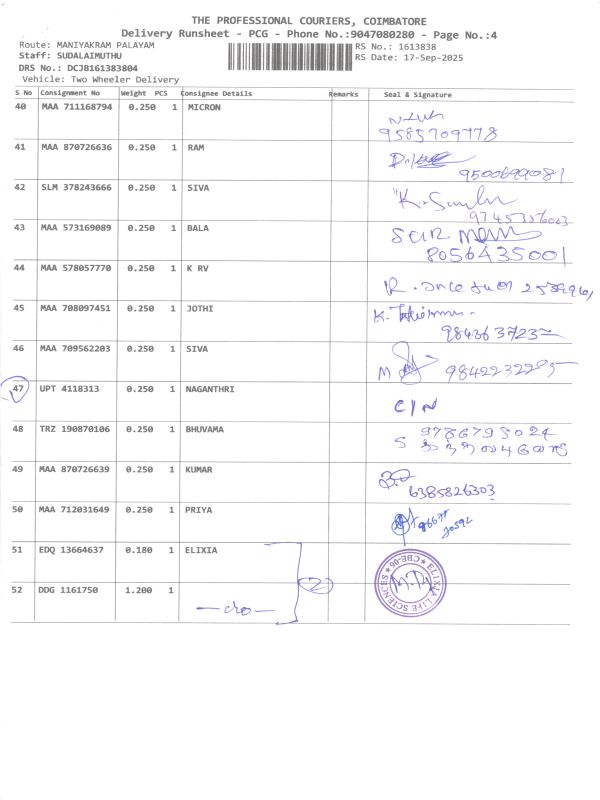 THE PROFESSIONAL COURIERS, COIMBATORE
Delivery Runsheet - PCG - Phone No.:9047080280 - Page No.:4
Route: MANIYAKRAM PALAYAM
RS No.: 1613838
Staff: SUDALAIMUTHU
RS Date: 17-Sep-2025
DRS No.: DCJB161383804
Vehicle: Two Wheeler Delivery
S No Consignment No Weight PCS Consignee Details Remarks Seal & Signature
40 MAA 711168794 0.250 1 MICRON
9585709778
41 MAA 870726636 0.250 1 RAM
9500699081
42 SLM 378243666 0.250 1 SIVA
43 MAA 573169089 0.250 1 BALA
8056435001
44 MAA 578057770 0.250 1 K RV
45 MAA 708097451 0.250 1 JOTHI
46 MAA 709562203 0.250 1 SIVA
47 UPT 4118313 0.250 1 NAGANTHRI C/N
48 TRZ 190870106 0.250 1 BHUVAMA 9786795024
49 MAA 870726639 0.250 1 KUMAR
6385826303
50 MAA 712031649 0.250 1 PRIYA
51 EDQ 13664637 0.180 1 ELIXIA
2
ELIXIA LIFE SCIENCES CBE-06
52 DDG 1161750 1.200 1